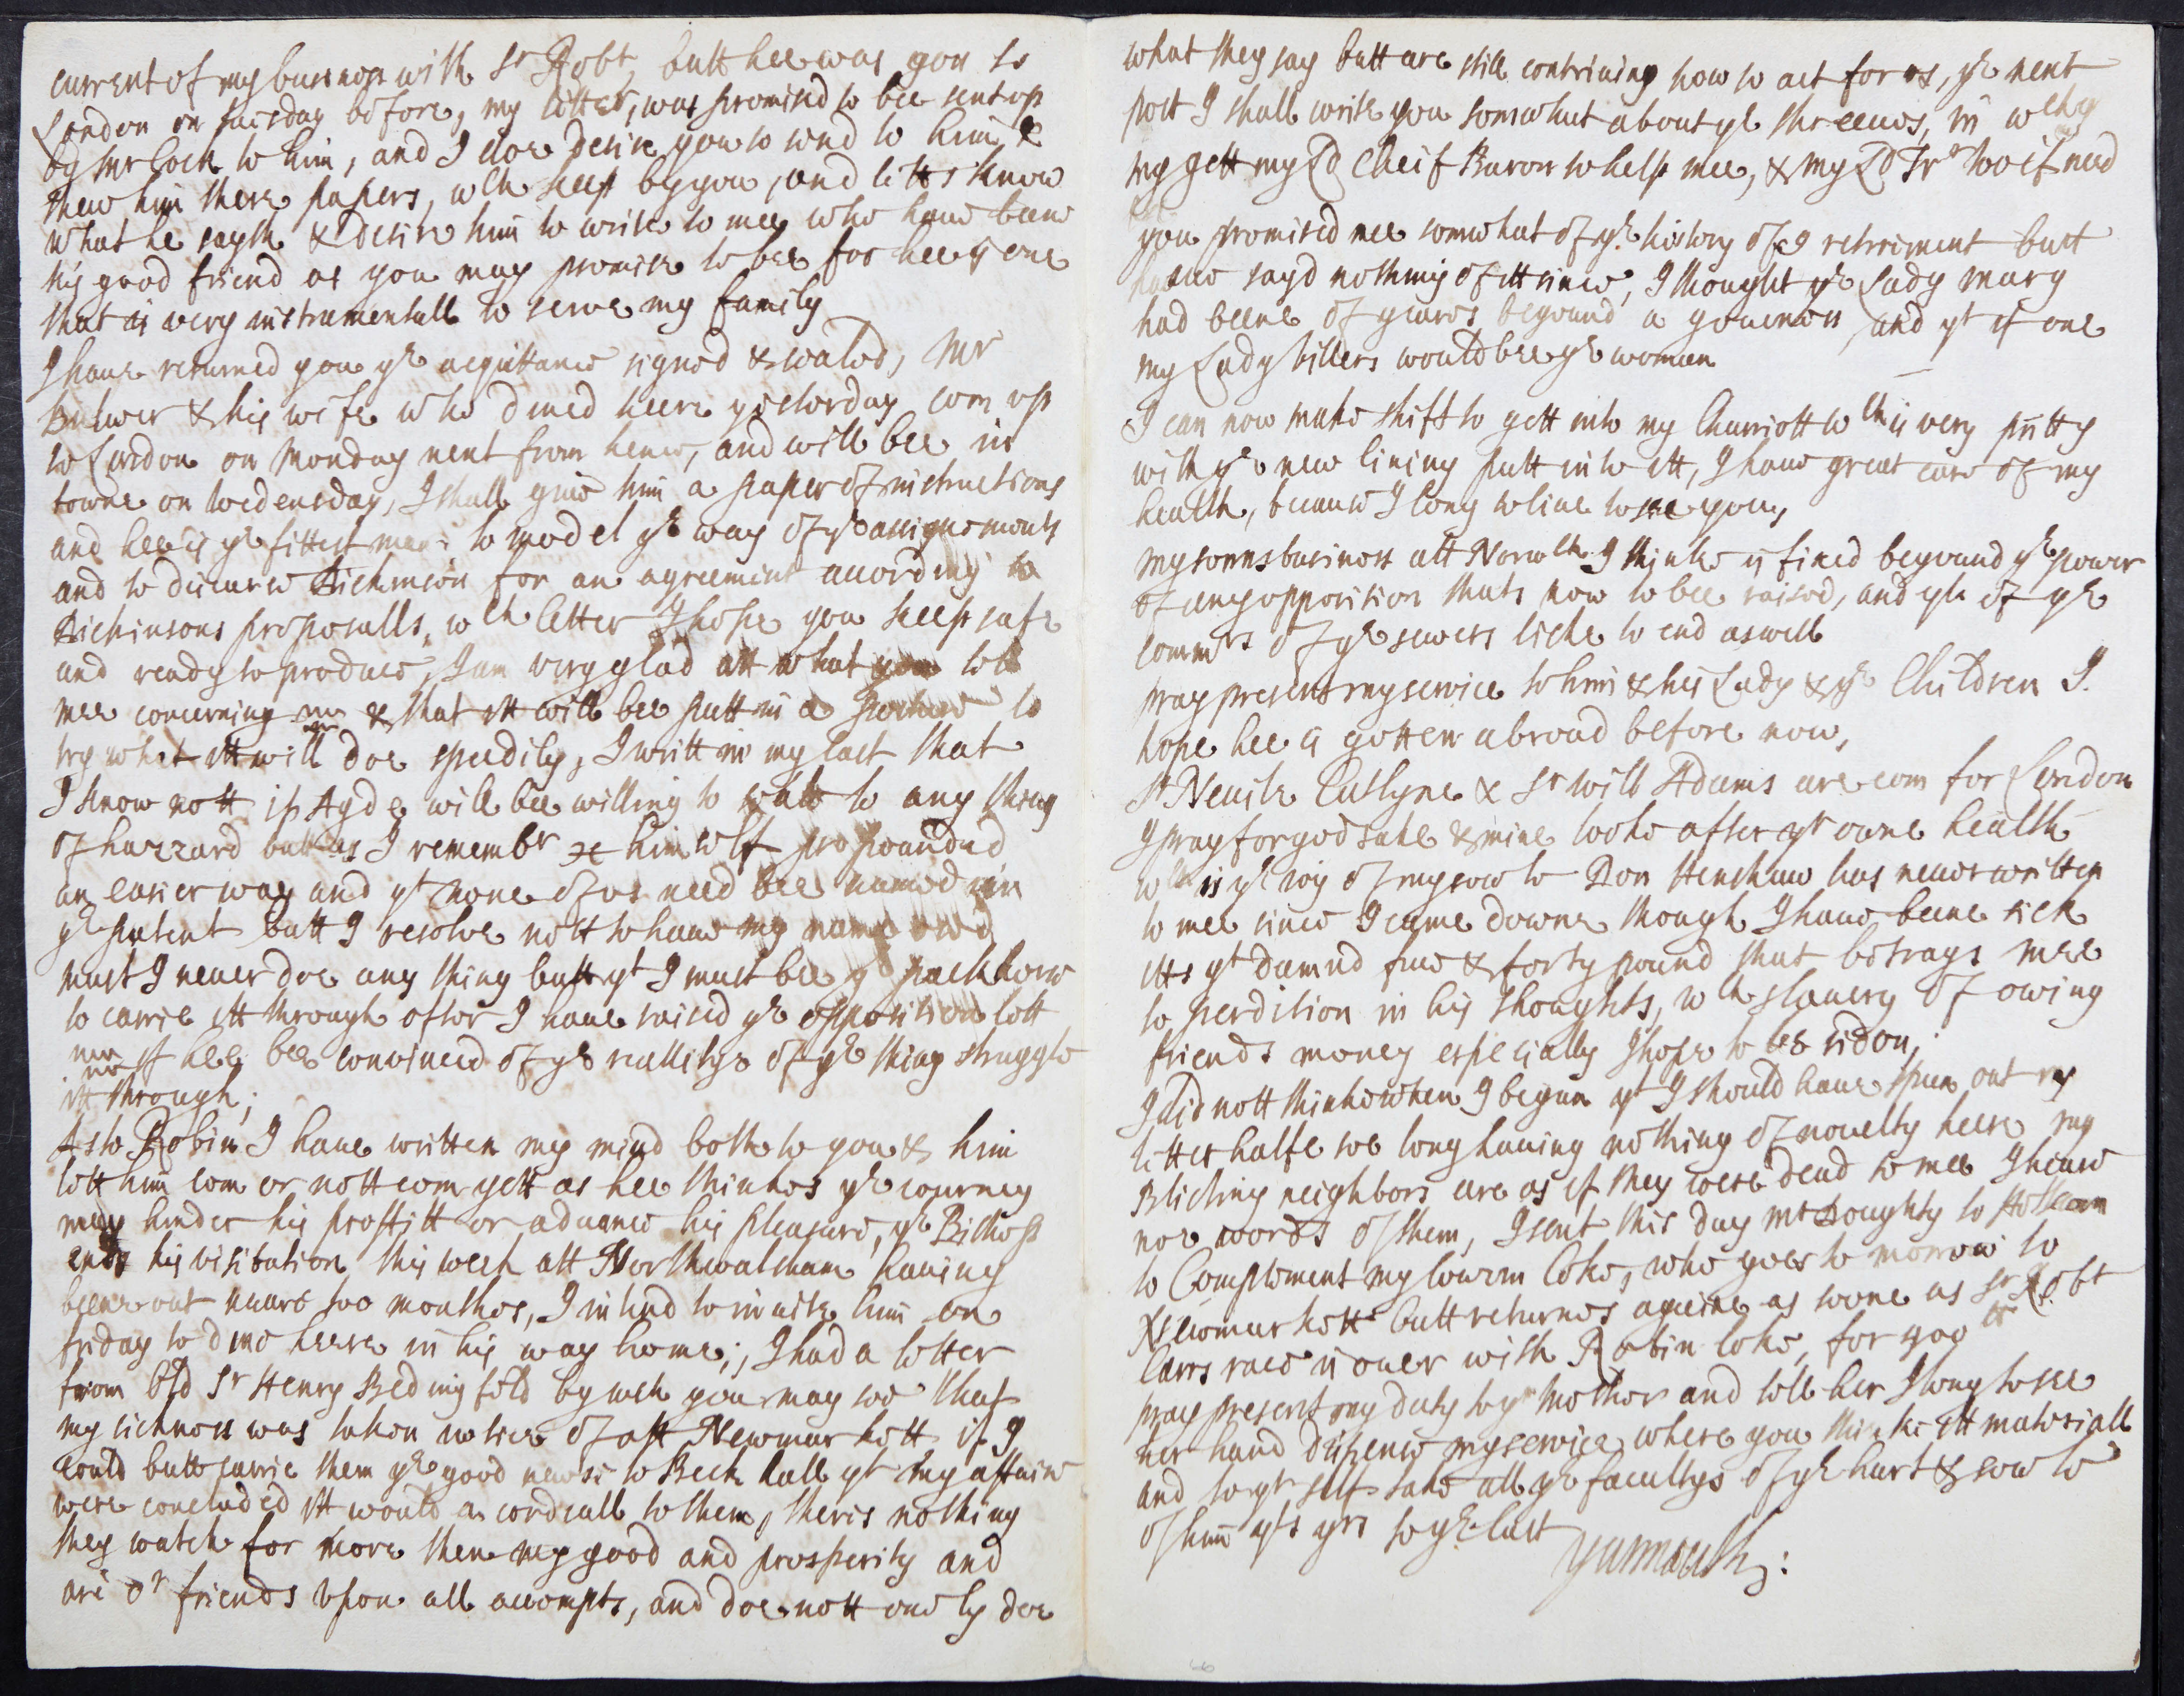 current of my business with Sr Robt, butt hee was gon to
London on tuesday before, my letter, was promised to bee sent up
by Mr Cock to him, and I doe desire you to send to him, &
shew him these papers, wch keep by you, and lett us know
what he sayth & desire him to write to mee who have been
his good friend as you may promise to bee for hee is one
that is very instrumentall to serve my family
I have returned you ye acquittance signed & sealed, Mr
Bulwer & his wife who dined heere yesterday com up
to London on Monday next from hence, and will bee in
towne on Wedensday, I shall give him a paper of instructions
and hee is ye fittest man to model ye way of ye assignements
and to discourse Dickinson for an agreement according to
Dickinsons proposalls, wch letter I hope you keep safe
and ready to produce, I am very glad att what you tell
mee concerning & that itt will bee putt in a to
try what itt will doe speedily, I writt in my last that
I know nott if Ayde will bee willing to to any thing
of hazzard butt as I remembr himself propounded
an easier way and yt none of us need bee named in
ye patent butt I resolve nott to have my name
must I never doe any thing butt yt I must bee ye packhorse
to carrie itt through after I have raised ye opposition lett
if hee bee convinced of ye reallitye of ye thing struggle
itt through;
As to Robin I have written my mind both to you & him
lett him com or nott com yett as hee thinkes ye journey
may hinder his proffitt or advance his pleasure, ye Bishop
ends his visitation this week att Northwalsham having
beene out neare too monthes, I intend to invite him on
friday to dine heere in his way home;, I had a letter
from old Sr Henry Bedingfeld by wch you may see that
my sickness was taken notice of att Newmarkett if I
could butt carrie them ye good newse to Beck hall yt my affaire
were concluded itt would a cordeall to them, theris nothing
they watch for more then my good and prosperity and
are or friends upon all accompts, and doe nott onely doe
what they say butt are still contriving how to act for us, ye next
post I shall write you somwhat about ye shreeves, in wch
gett my Ld Cheif Baron to help mee, & my Ld Trr too if need
you promised mee somwhat of ye history of retirement butt
have sayd nothing of itt since, I thought ye Lady Mary
had beene of yeares beyound a governess, and yt if one
my Lady Sillers would bee ye woman
I can now make shift to gett into my Charriott wch is very pritty
with ye new lining putt into itt, I have great care of my
health, because I long to live to see you,
my sonns business att Norwch I thinke is fixed beyound ye power
of any opposition thats now to bee raised, and yt of ye
commrs of ye sewers like to end as well
pray present my service to him & his Lady & ye Children I
hope hee is gotten abroad before now,
Sr Nevile Catlyne & Sr Will Adams are com for London
I pray for god sake & mine looke after yr owne health
wch is ye joy of my sowle Don Henshaw has never written
to mee since I came downe though I have beene sick
itts yt damnd five & forty pound that betrays mee
to perdition in his thoughts, wch slavery of owing
friends money especially I hope to bee rid on,
I did nott thinke when I begun yt I should have spun out my
letter halfe soe long having nothing of novelty heere my
Blickling neighbors are as if they were dead to mee I heare
noe words of them, I sent this day Mr Doughty to Holkam
to Complement my Cowsin Coke, who goes to morrow to
Newmarkett butt returnes againe as soone as Sr Robt
Carrs race is over with Robin Coke, for 400 ll
pray present my duty to yr Mother and tell her I long to see
her hand dispence my service where you thinke itt materiall
and to yr self take all ye facultys of ye hart & sowle
of him yts yrs to ye last
Yarmouth: